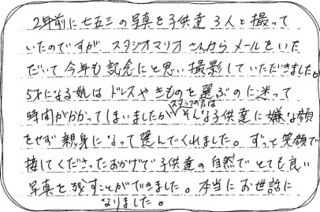 2年前に七五三の写真を子供達3人と撮って
いたのですが、スタジオマリオさんからメールをいた
だいて今年も記念にと思い撮影していただきました。
5才になる娘はドレスやきものを選ぶのに迷って
時間がかかってしまいましたが、スタッフの方はそんな子供に嫌な顔
をせず親身になって選んでくれました。ずっと笑顔で
接してくださったおかげで子供達の自然でとても良い
写真を残すことができました。本当にお世話に
なりました。